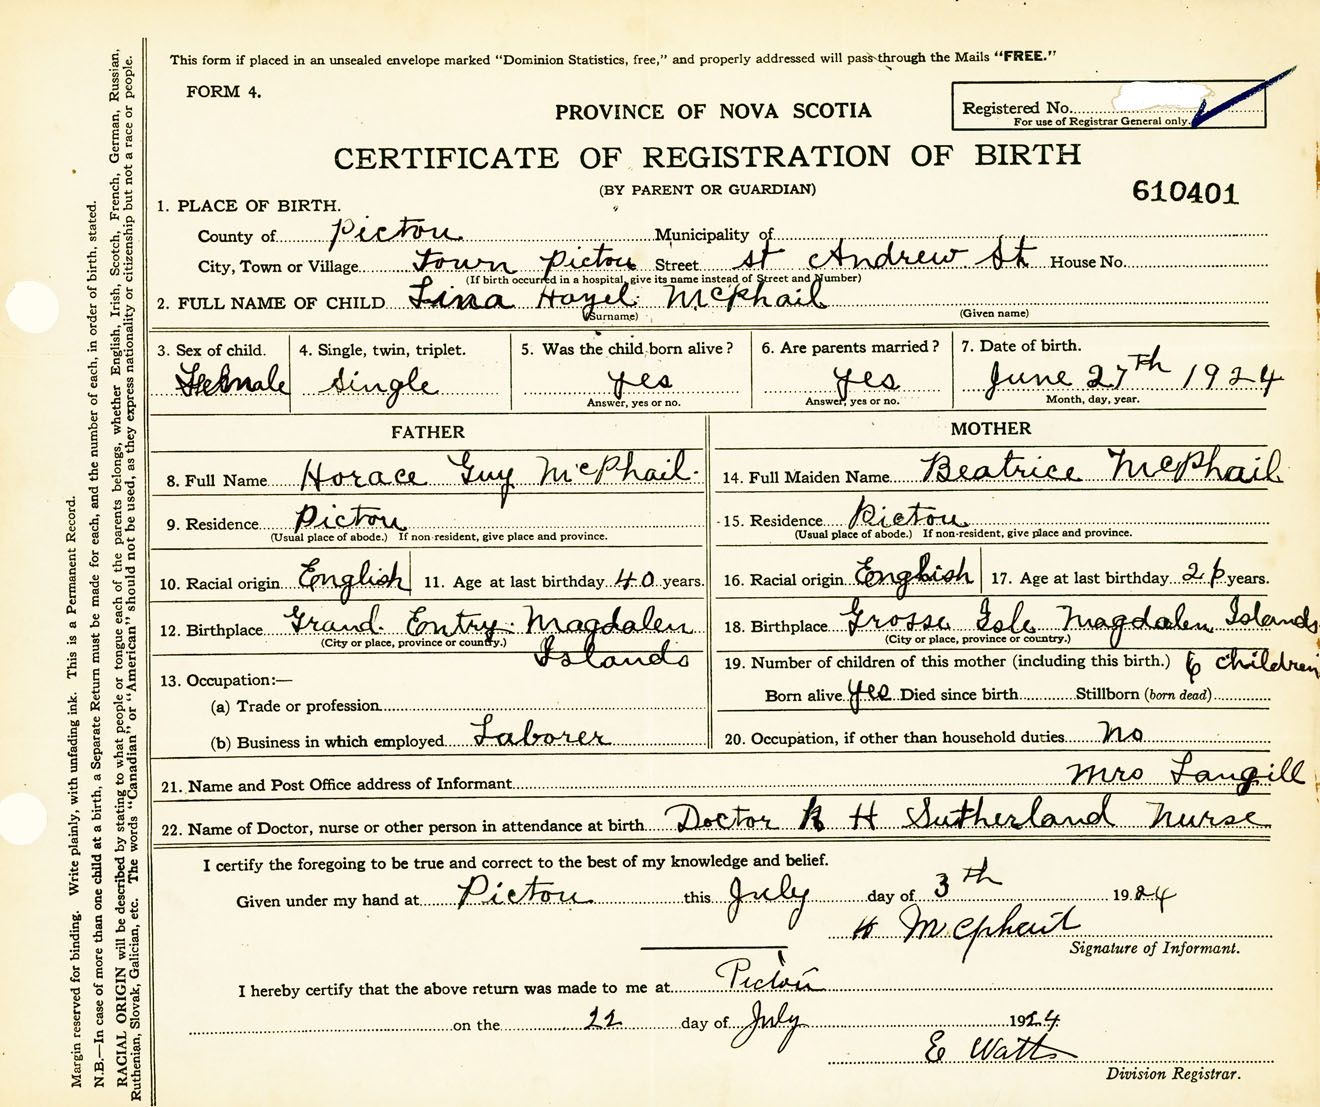 This form if placed in an unsealed envelope marked "Dominion Statistics, free," and properly addressed will pass through the Mails "FREE."
FORM 4.
PROVINCE OF NOVA SCOTIA
Registered No.
For use of Registrar General only.
CERTIFICATE OF REGISTRATION OF BIRTH
(BY PARENT OR GUARDIAN)
610401
1. PLACE OF BIRTH.
County of Pictou Municipality of
City, Town or Village Town Pictou Street St Andrew St House No.
(If birth occurred in a hospital, give its name instead of Street and Number)
2. FULL NAME OF CHILD Lina Hazel McPhail
(Surname) (Given name)
3. Sex of child. 4. Single, twin, triplet. 5. Was the child born alive? 6. Are parents married? 7. Date of birth.
Female Single yes yes June 27th 1924
Answer, yes or no. Answer, yes or no. Month, day, year.
FATHER MOTHER
8. Full Name Horace Guy McPhail 14. Full Maiden Name Beatrice McPhail
9. Residence Pictou 15. Residence Pictou
(Usual place of abode.) If non-resident, give place and province. (Usual place of abode.) If non-resident, give place and province.
10. Racial origin English 11. Age at last birthday 40 years. 16. Racial origin English 17. Age at last birthday years.
12. Birthplace Grand Entry Magdalen Islands 18. Birthplace Grosse Isle Magdalen Islands
(City or place, province or country.) (City or place, province or country.)
13. Occupation:— 19. Number of children of this mother (including this birth.) 6 children
(a) Trade or profession Born alive yes Died since birth Stillborn (born dead)
(b) Business in which employed Laborer 20. Occupation, if other than household duties No
21. Name and Post Office address of Informant Mrs Langill
22. Name of Doctor, nurse or other person in attendance at birth Doctor H Sutherland Nurse
I certify the foregoing to be true and correct to the best of my knowledge and belief.
Given under my hand at Pictou this July day of 3th 1924
H McPhail
Signature of Informant.
I hereby certify that the above return was made to me at Pictou
on the 22 day of July 1924
E Watts
Division Registrar.
Margin reserved for binding. Write plainly, with unfading ink. This is a Permanent Record.
N.B.—In case of more than one child at a birth, a Separate Return must be made for each, and the number of each, in order of birth, stated.
RACIAL ORIGIN will be described by stating to what people or tongue each of the parents belongs, whether English, Irish, Scotch, French, German, Russian,
Ruthenian, Slovak, Galician, etc. The words "Canadian" or "American" should not be used, as they express nationality or citizenship but not a race or people.